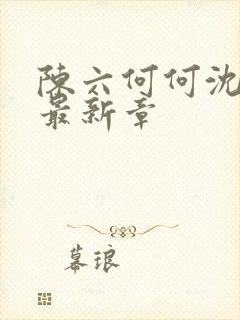 陳六何何沈
最新章
幕琅